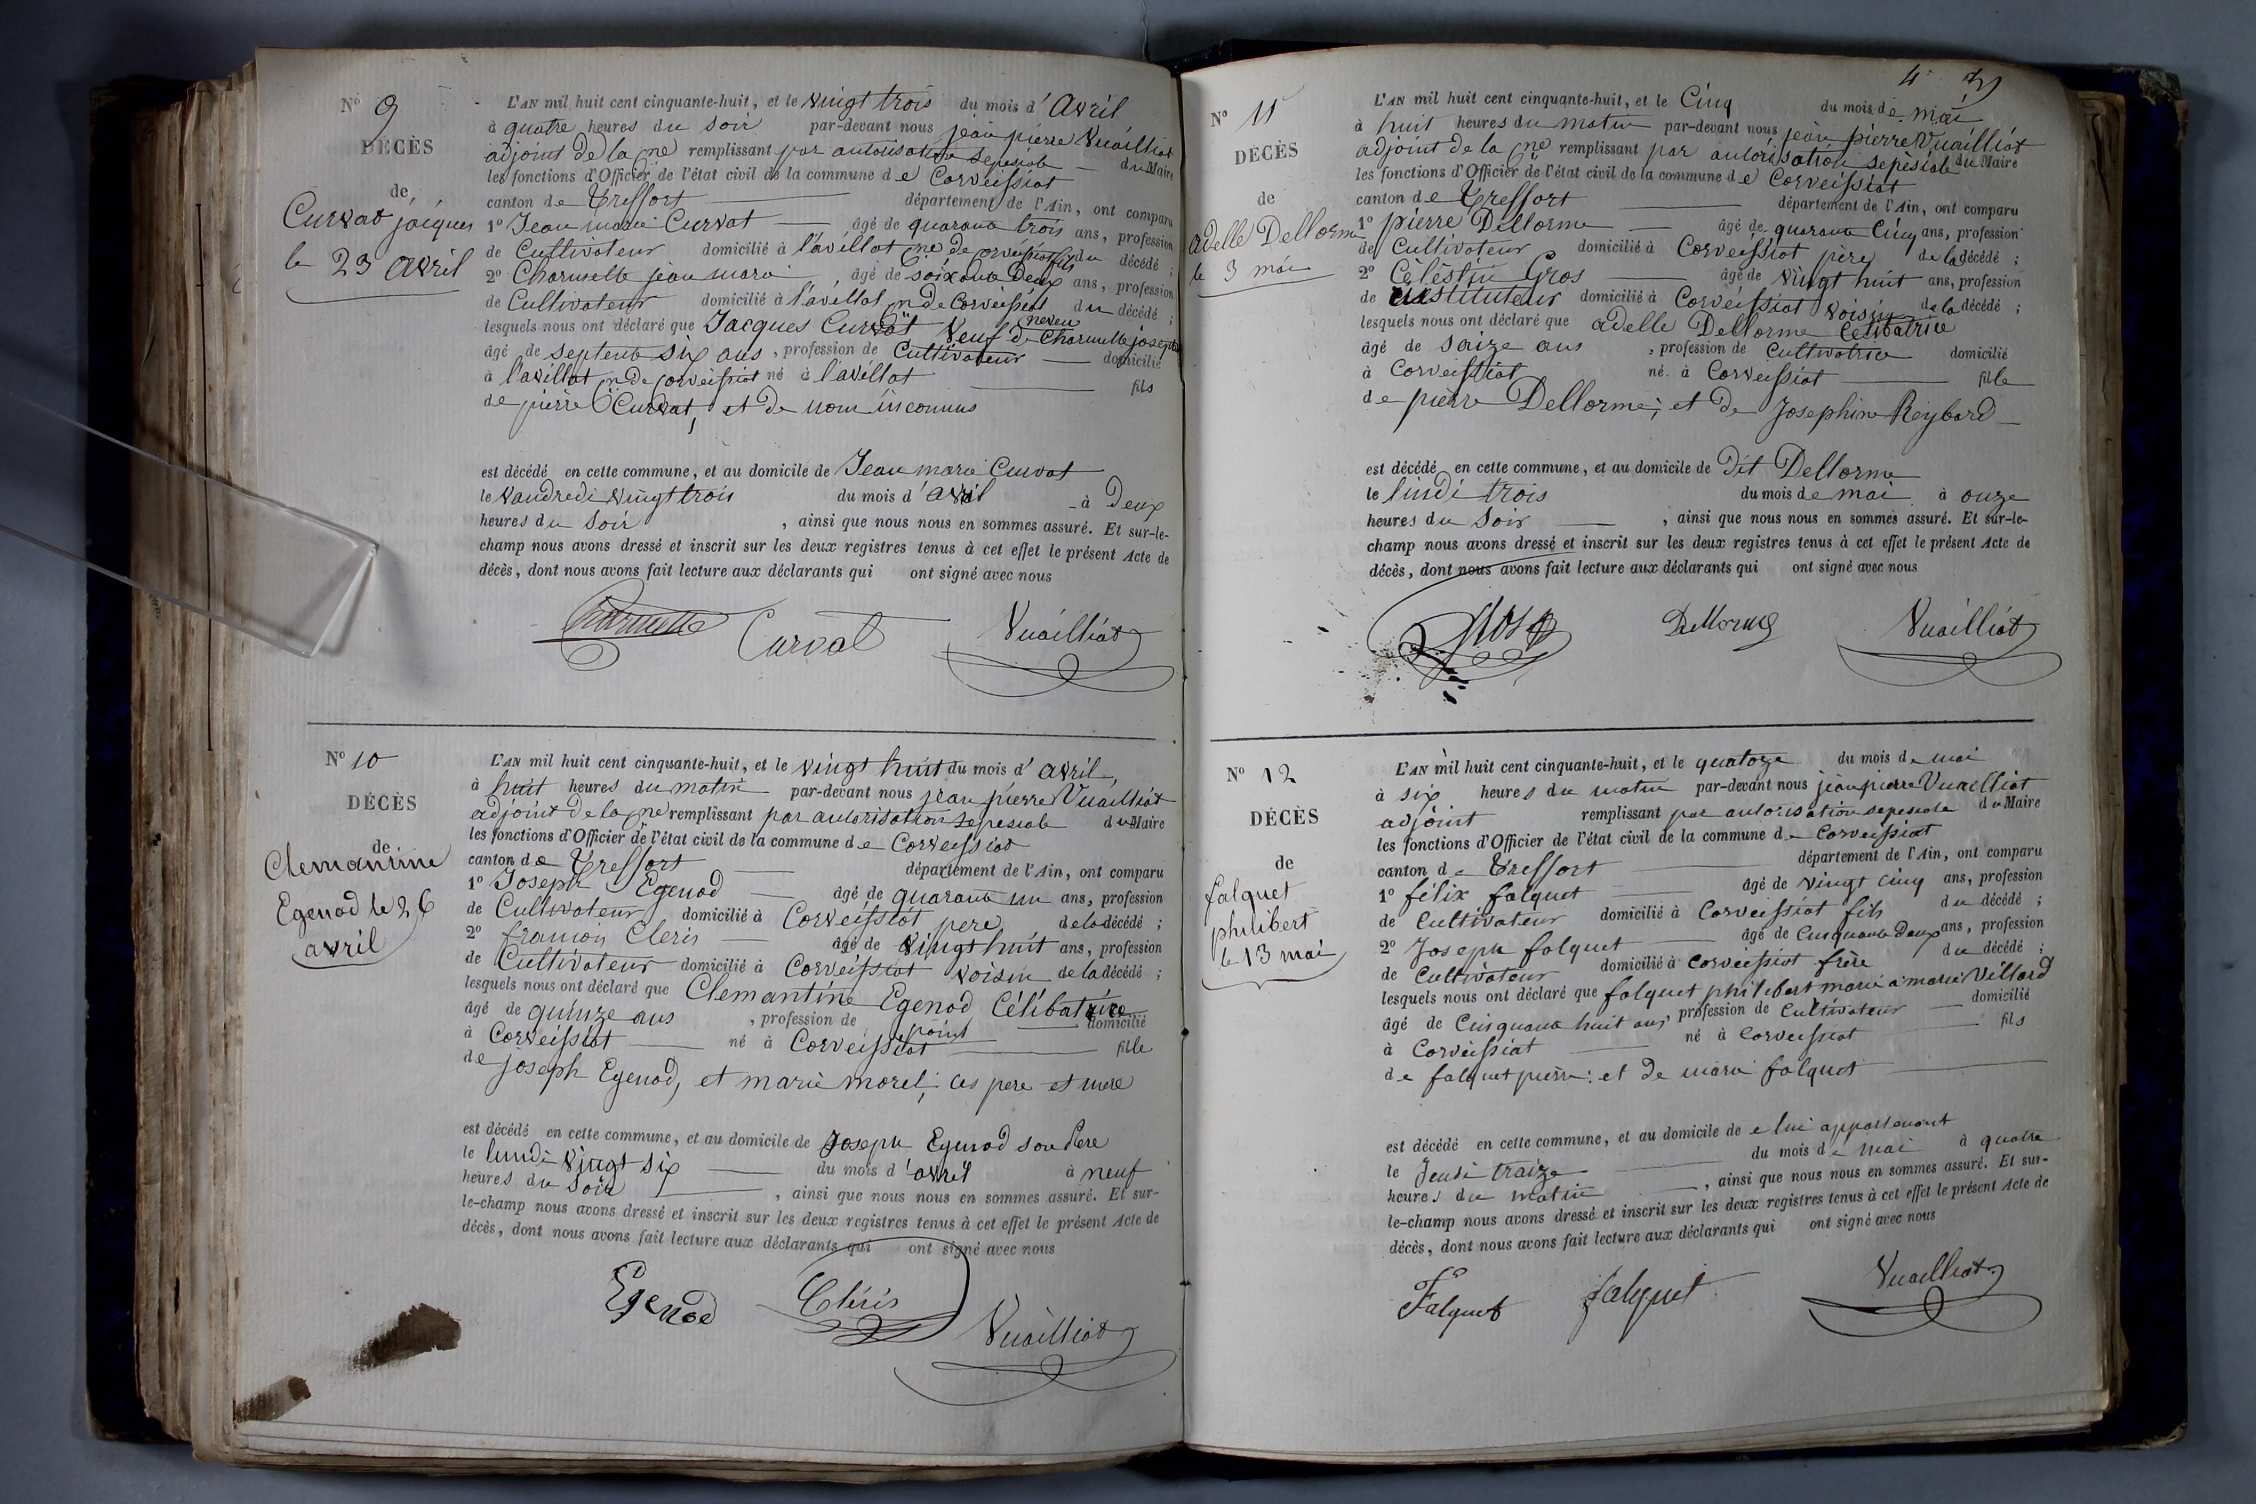 Nº 9
DÉCÈS
de
Curvat jacques
le 23 avril
L'AN mil huit cent cinquante-huit, et le vingt trois du mois d'avril
à quatre heures du soir par-devant nous jean pierre Vuailliat
adjoint de la cne remplissant par autorisation sepesiale du Maire
les fonctions d'Officier de l'état civil de la commune de Corveissiat
canton de Treffort département de l'Ain, ont comparu
1º Jean marie Curvat âgé de quarante trois ans, profession
de Cultivateur domicilié à l'avillat cne de corveissiat fils du décédé ;
2º Charnelle jean marie âgé de soixante Deux ans, profession
de Cultivateur domicilié à l'avillat cne de Corveissiat neveu du décédé ;
lesquels nous ont déclaré que Jacques Curvat veuf de Charnelle josepte
âgé de septente six ans, profession de Cultivateur domicilié
à l'avillat cne de corveissiat né à l'avillat fils
de pierre Curvat, et de nom inconnus
est décédé en cette commune, et au domicile de Jean marie Curvat
le vandredi vingt trois du mois d'avril à Deux
heures du soir, ainsi que nous nous en sommes assuré. Et sur-le-
champ nous avons dressé et inscrit sur les deux registres tenus à cet effet le présent Acte de
décès, dont nous avons fait lecture aux déclarants qui ont signé avec nous
Charnelle Curvat Vuailliat
Nº 10
DÉCÈS
de
Clemantine
Egenod le 26
avril
L'AN mil huit cent cinquante-huit, et le vingt huit du mois d'avril,
à huit heures du matin par-devant nous jean pierre Vuailliat
adjoint de la cne remplissant par autorisation sepesiale du Maire
les fonctions d'Officier de l'état civil de la commune de Corveissiat
canton de Treffort département de l'Ain, ont comparu
1º Joseph Egenod âgé de quarante un ans, profession
de Cultivateur domicilié à Corveissiat pere de la décédé ;
2º françois Cleris âgé de vingt huit ans, profession
de Cultivateur domicilié à Corveissiat voisin de la décédé ;
lesquels nous ont déclaré que Clemantine Egenod Célibataire
âgé de quinze ans, profession de point domicilié
à Corveissiat né à Corveissiat fille
de joseph Egenod, et marie morel; ces pere et mere
est décédé en cette commune, et au domicile de Joseph Egenod son Pere
le lundi vingt six du mois d'avril à neuf
heures du soir, ainsi que nous nous en sommes assuré. Et sur-
le-champ nous avons dressé et inscrit sur les deux registres tenus à cet effet le présent Acte de
décès, dont nous avons fait lecture aux déclarants qui ont signé avec nous
Egenod Cléris Vuailliat
4
Nº 11
DÉCÈS
de
adelle Dellorme
le 3 mai
L'AN mil huit cent cinquante-huit, et le Cinq du mois de mai
à huit heures du matin par-devant nous jean pierre Vuailliat
adjoint de la cne remplissant par autorisation sepésiale du Maire
les fonctions d'Officier de l'état civil de la commune de Corveissiat
canton de Treffort département de l'Ain, ont comparu
1º pierre Dellorme âgé de quarante Cinq ans, profession
de Cultivateur domicilié à Corveissiat père de la décédé ;
2º Célestin Gros âgé de vingt huit ans, profession
de instituteur domicilié à Corveissiat voisin de la décédé ;
lesquels nous ont déclaré que adelle Dellorme Celibatrice
âgé de saize ans, profession de Cultivatrice domicilié
à Corveissiat né à Corveissiat fille
de pierre Dellorme; et de Josephine Reybard
est décédé en cette commune, et au domicile de dit Dellorme
le lindi trois du mois de mai à onze
heures du Soir, ainsi que nous nous en sommes assuré. Et sur-le-
champ nous avons dressé et inscrit sur les deux registres tenus à cet effet le présent Acte de
décès, dont nous avons fait lecture aux déclarants qui ont signé avec nous
Gros Dellorme Vuailliat
Nº 12
DÉCÈS
de
falquet
philibert
le 13 mai
L'AN mil huit cent cinquante-huit, et le quatoze du mois de mai
à six heures du matin par-devant nous jean pierre Vuailliat
adjoint remplissant par autorisation sepesiale du Maire
les fonctions d'Officier de l'état civil de la commune de Corveissiat
canton de Treffort département de l'Ain, ont comparu
1º félix falquet âgé de vingt cinq ans, profession
de Cultivateur domicilié à Corveissiat fils du décédé ;
2º Joseph falquet âgé de Cinquante Deux ans, profession
de Cultivateur domicilié à corveissiat frère du décédé ;
lesquels nous ont déclaré que falquet philibert marié a marie Villard
âgé de Cinquante huit ans, profession de Cultivateur domicilié
à Corveissiat né à Corveissiat fils
de falquet pierre: et de marie falquet
est décédé en cette commune, et au domicile de e lui appartenant
le Jeudi traize du mois de mai à quatre
heures du matin, ainsi que nous nous en sommes assuré. Et sur-
le-champ nous avons dressé et inscrit sur les deux registres tenus à cet effet le présent Acte de
décès, dont nous avons fait lecture aux déclarants qui ont signé avec nous
Falquet falquet Vuailliat